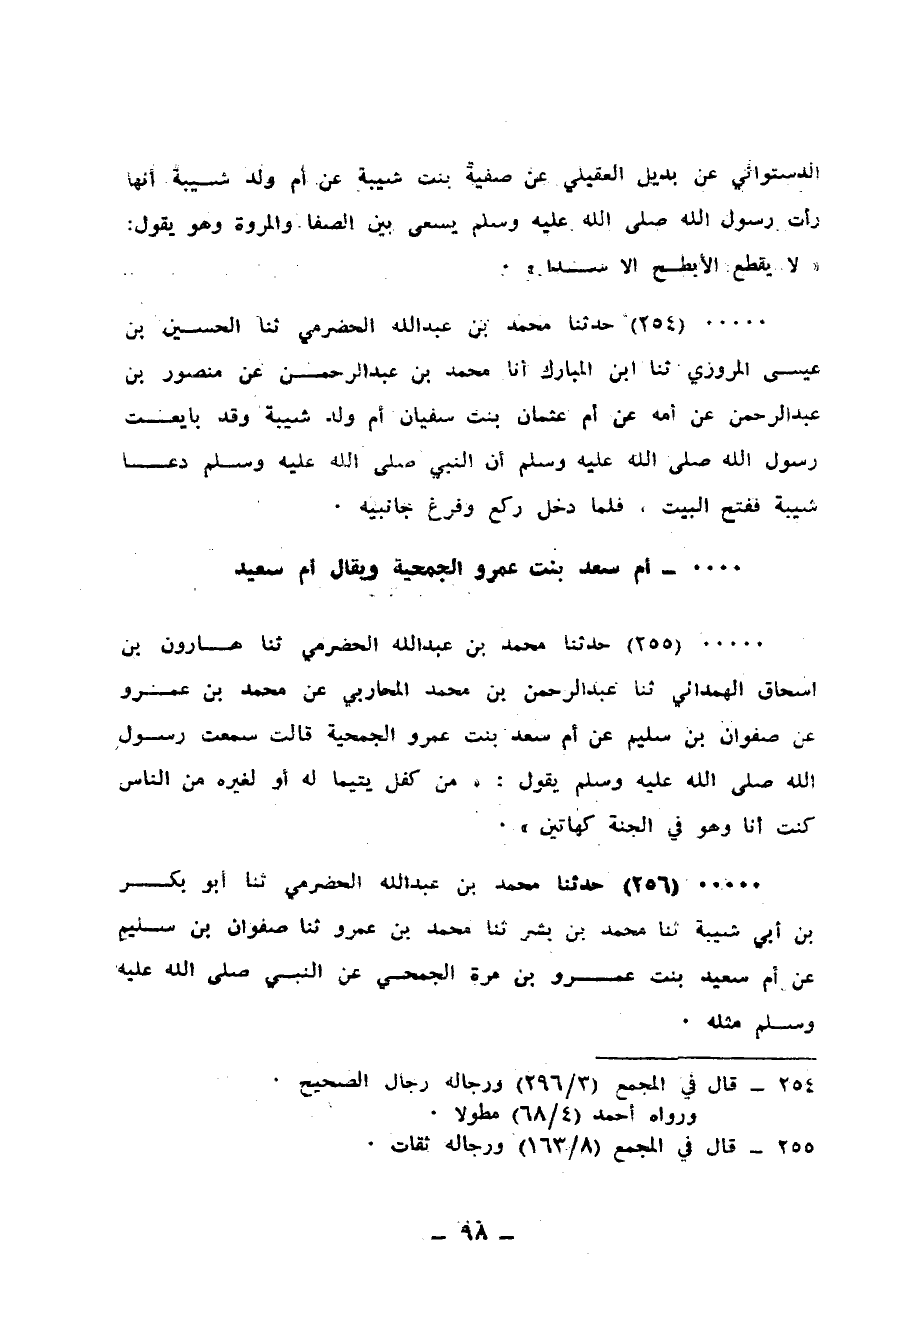 الدستوائي عن بديل العقيلي عن صفية بنت شيبة عن أم ولد شــيبة أنها
رأت رسول الله صلى الله عليه وسلم يسعى بين الصفا والمروة وهو يقول:
« لا يقطع الأبطــح الا شــدا » ٠
٠٠٠٠٠ (٢٥٤) حدثنا محمد بن عبدالله الحضرمي ثنا الحســين بن
عيســى المروزي ثنا ابن المبارك أنا محمد بن عبدالرحمــن عن منصور بن
عبدالرحمن عن أمه عن أم عثمان بنت سفيان أم ولد شيبة وقد بايعــت
رسول الله صلى الله عليه وسلم أن النبي صلى الله عليه وســلم دعــا
شيبة ففتح البيت ، فلما دخل ركع وفرغ جانبيه ٠
٠٠٠٠ ـ أم سعد بنت عمرو الجمحية ويقال أم سعيد
٠٠٠٠٠ (٢٥٥) حدثنا محمد بن عبدالله الحضرمي ثنا هــارون بن
اسحاق الهمداني ثنا عبدالرحمن بن محمد المحاربي عن محمد بن عمــرو
عن صفوان بن سليم عن أم سعد بنت عمرو الجمحية قالت سمعت رســول
الله صلى الله عليه وسلم يقول : « من كفل يتيما له أو لغيره من الناس
كنت أنا وهو في الجنة كهاتين » ٠
٠٠٠٠٠ (٢٥٦) حدثنا محمد بن عبدالله الحضرمي ثنا أبو بكــر
بن أبي شيبة ثنا محمد بن بشر ثنا محمد بن عمرو ثنا صفوان بن ســليم
عن أم سعيد بنت عمــرو بن مرة الجمحــي عن النبــي صلى الله عليه
وســلم مثله ٠
٢٥٤ ـ قال في المجمع (٢٩٦/٣) ورجاله رجال الصحيح ٠
ورواه أحمد (٦٨/٤) مطولا ٠
٢٥٥ ـ قال في المجمع (١٦٣/٨) ورجاله ثقات ٠
ـ ٩٨ ـ